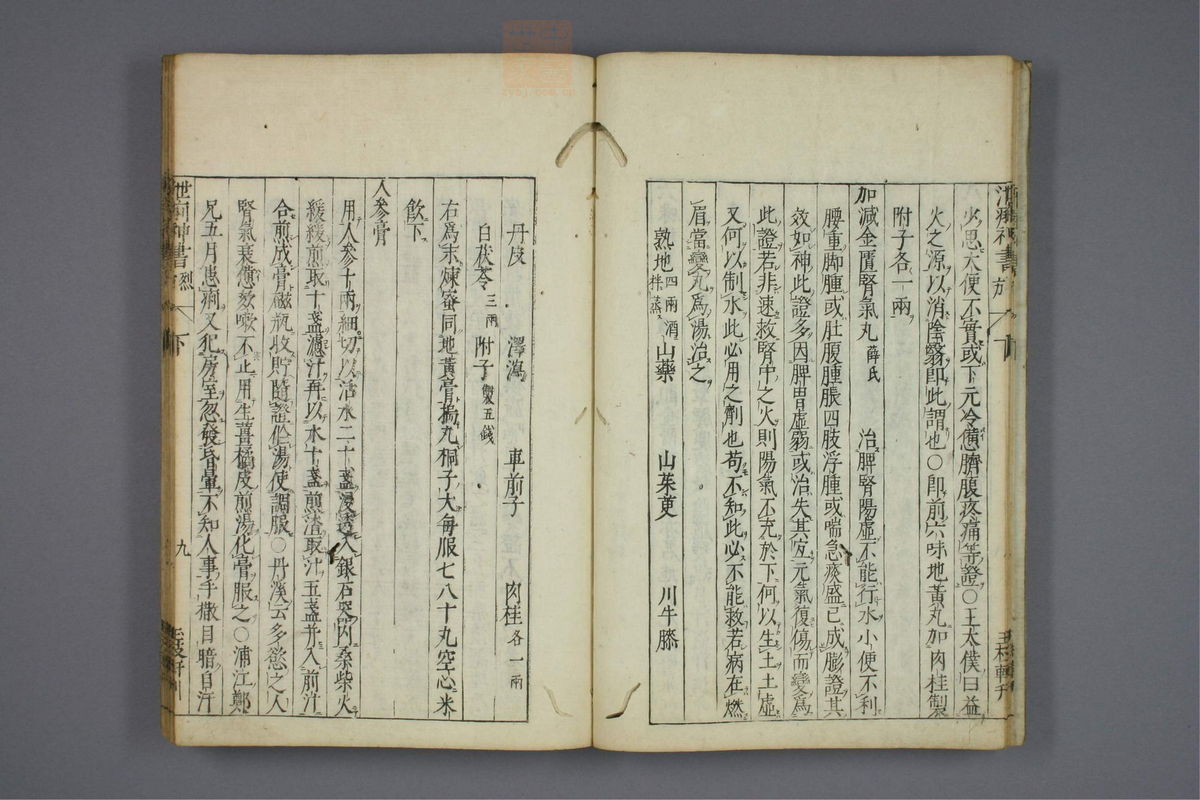 少思大便不實或下元冷憊臍腹疼痛等證○王太僕曰益
火之源以消陰翳即此謂也○即前六味地黃丸加肉桂製
附子各一兩
加減金匱腎氣丸 薛氏 治脾腎陽虛不能行水小便不利
腰重脚腫或肚腹腫脹四肢浮腫或喘急痰盛已成膨證其
效如神此證多因脾胃虛弱或治失其宜元氣復傷而變爲
此證若非速救腎中之火則陽氣不充於下何以生土土虛
又何以制水此必用之劑也苟不知此必不能救若病在燃
眉當變丸爲湯治之
熟地 四兩酒拌蒸 山藥 山茱萸 川牛膝
丹皮 澤瀉 車前子 肉桂 各一兩
白茯苓 三兩 附子 製五錢
右爲末煉蜜同地黃膏搗丸桐子大每服七八十丸空心米
飲下
人參膏
用人參十兩細切以活水二十盞浸透入銀石器內桑柴火
緩緩煎取十盞濾汁再以水十盞煎渣取汁五盞并入前汁
合煎成膏磁瓶收貯隨證作湯使調服○丹溪云多慾之人
腎氣衰憊欬嗽不止用生薑橘皮煎湯化膏服之○浦江鄭
兄五月患痢又犯房室忽發昏暈不知人事手撒目暗自汗
九